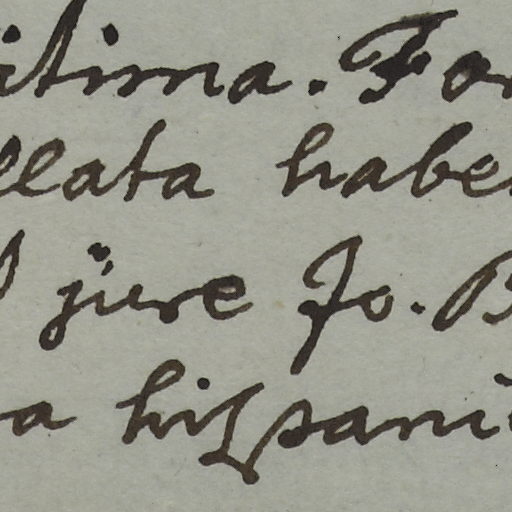 itima. For
llata haben
jure Jo. B
a hispani